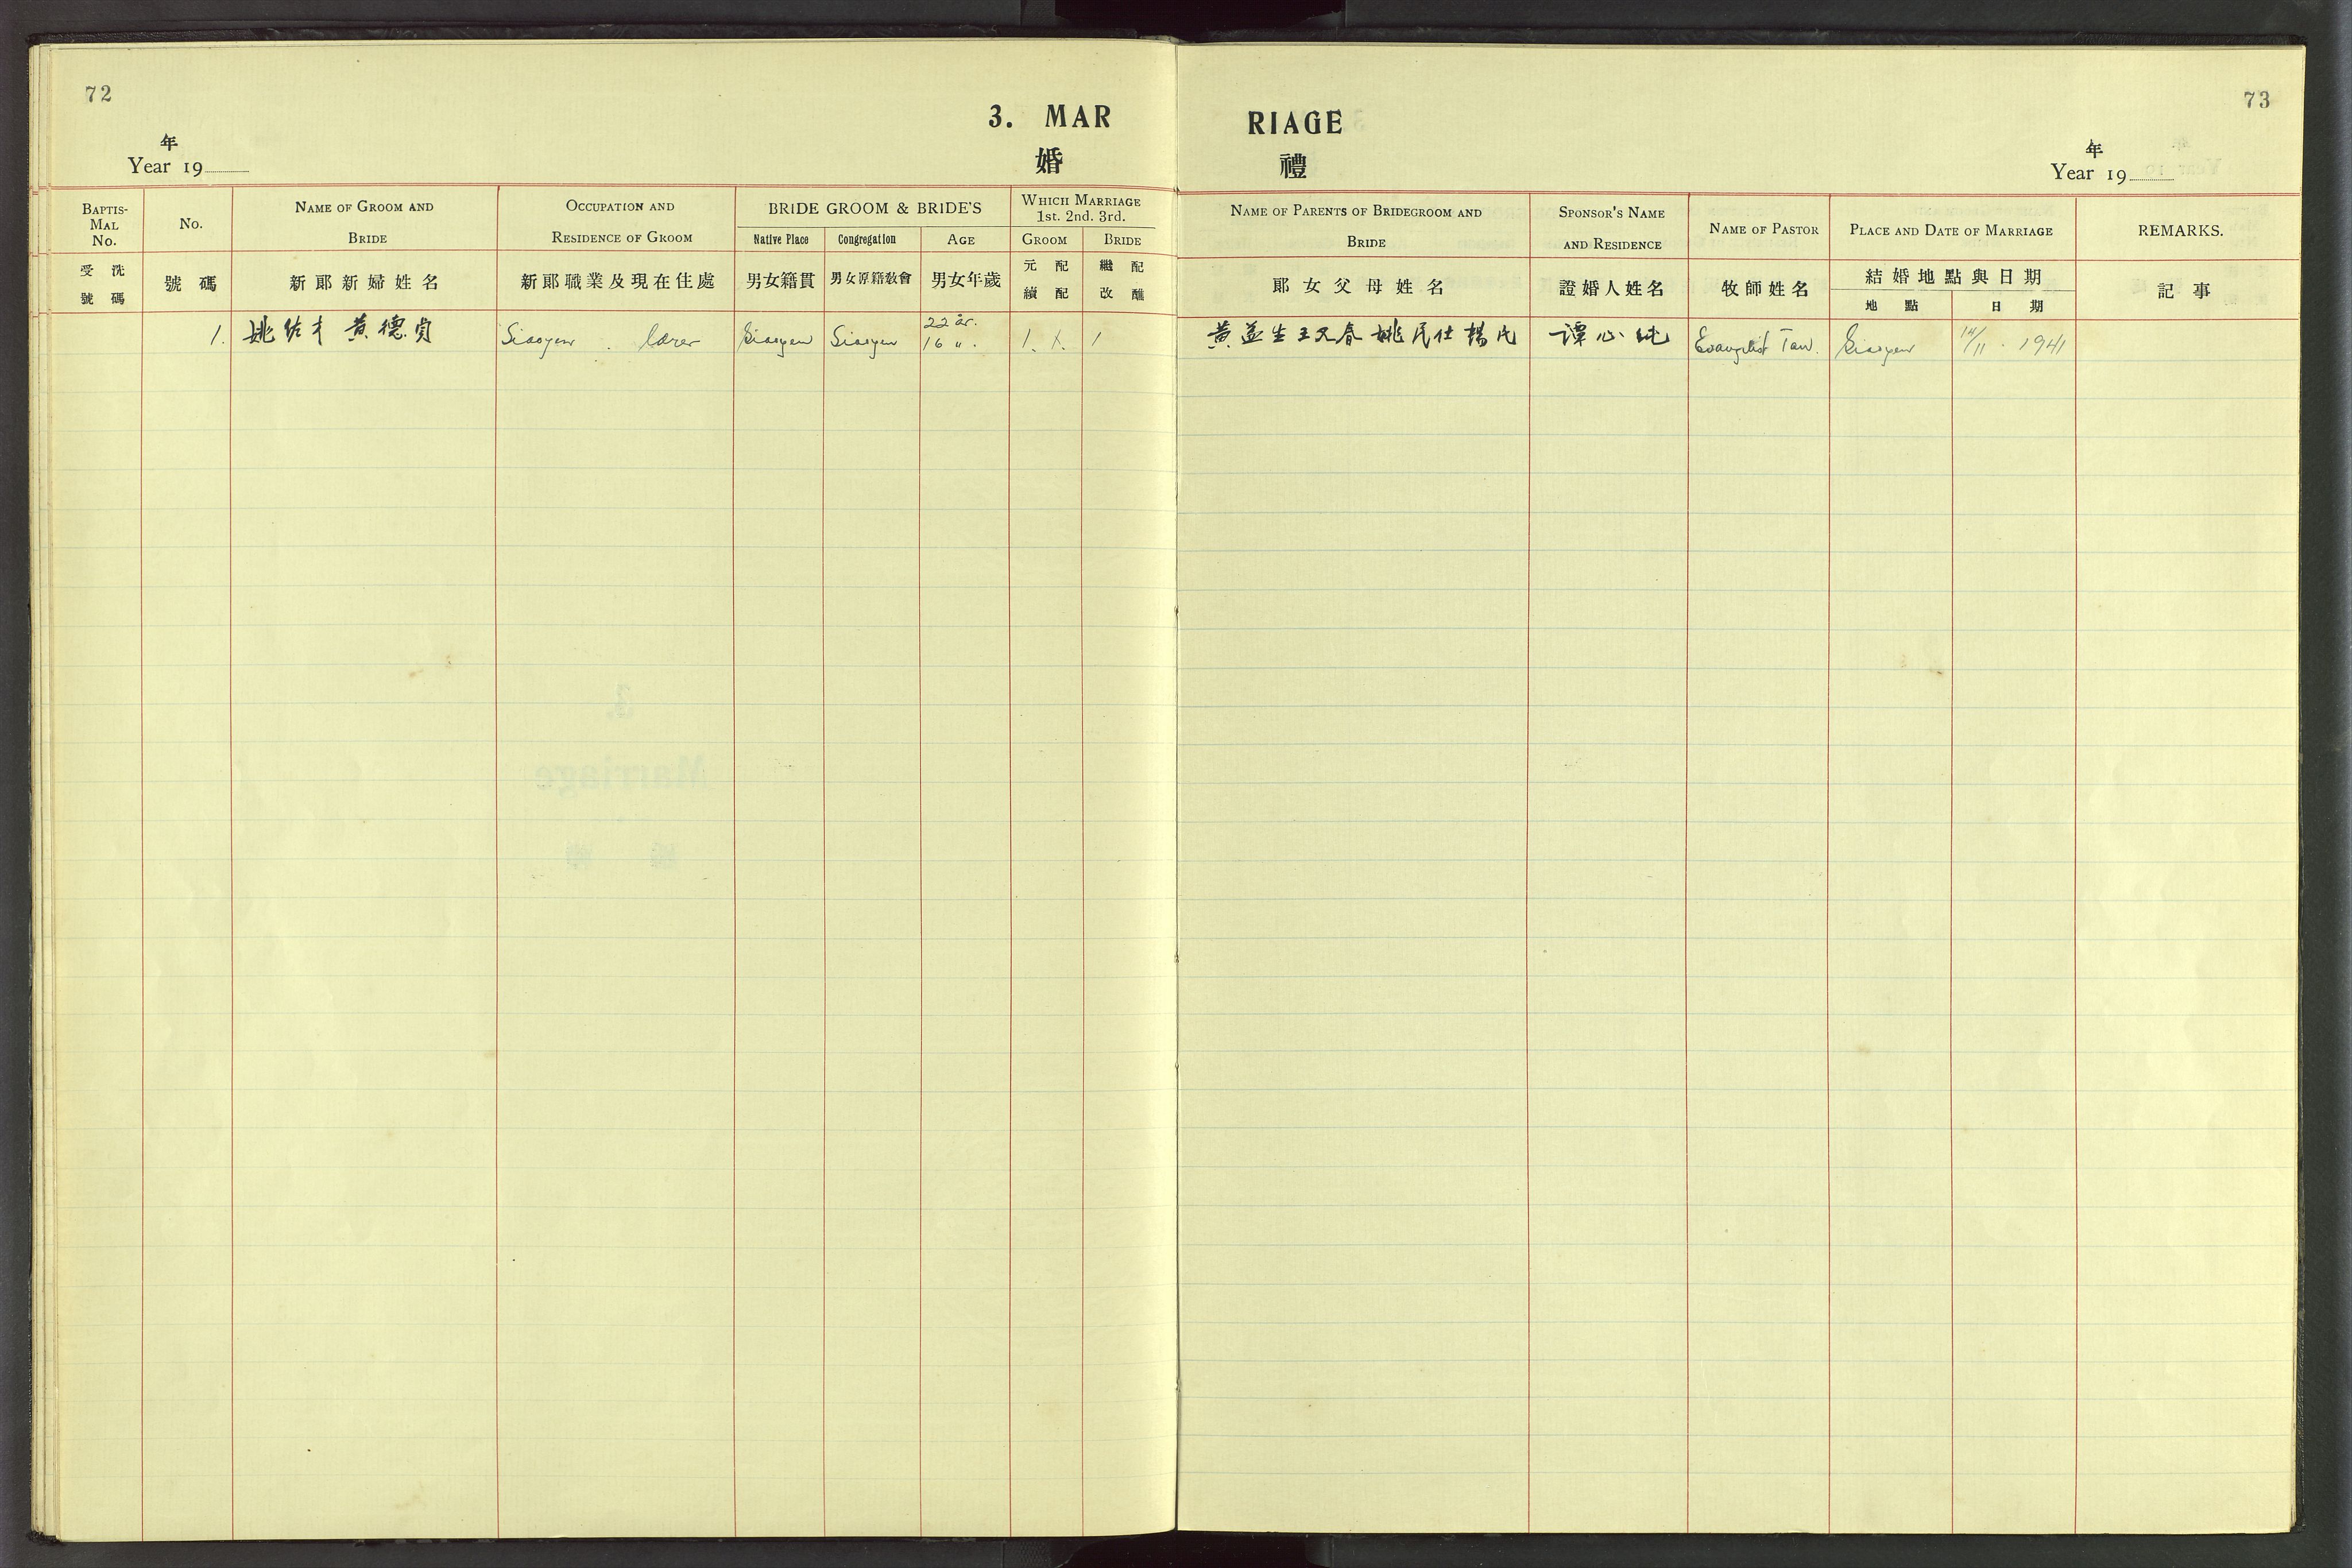 72
3. MAR
年
婚
Year 19
BAPTIS-
MAL
No.
No.
NAME OF GROOM AND
BRIDE
OCCUPATION AND
RESIDENCE OF GROOM
BRIDE GROOM & BRIDE'S
Native Place
Congregation
AGE
WHICH MARRIAGE
1st. 2nd. 3rd.
GROOM
BRIDE
受洗
號碼
號碼
新郎新婦姓名
新郎職業及現在住處
男女籍貫
男女原籍敎會
男女年歲
元配
續配
繼配
改醮
1.
黃德
Siaoyen . Lærer
Siaoyen
Siaoyen
22 år.
16 〃.
1.
1
73
RIAGE
年
禮
Year 19
NAME OF PARENTS OF BRIDEGROOM AND
BRIDE
SPONSOR'S NAME
AND RESIDENCE
NAME OF PASTOR
PLACE AND DATE OF MARRIAGE
REMARKS.
郎女父母姓名
證婚人姓名
牧師姓名
結婚地點與日期
地點
日期
記事
黃益生王又春姚氏仕楊氏
譚心純
Evangelist Tan.
Siaoyen
14/11 . 1941